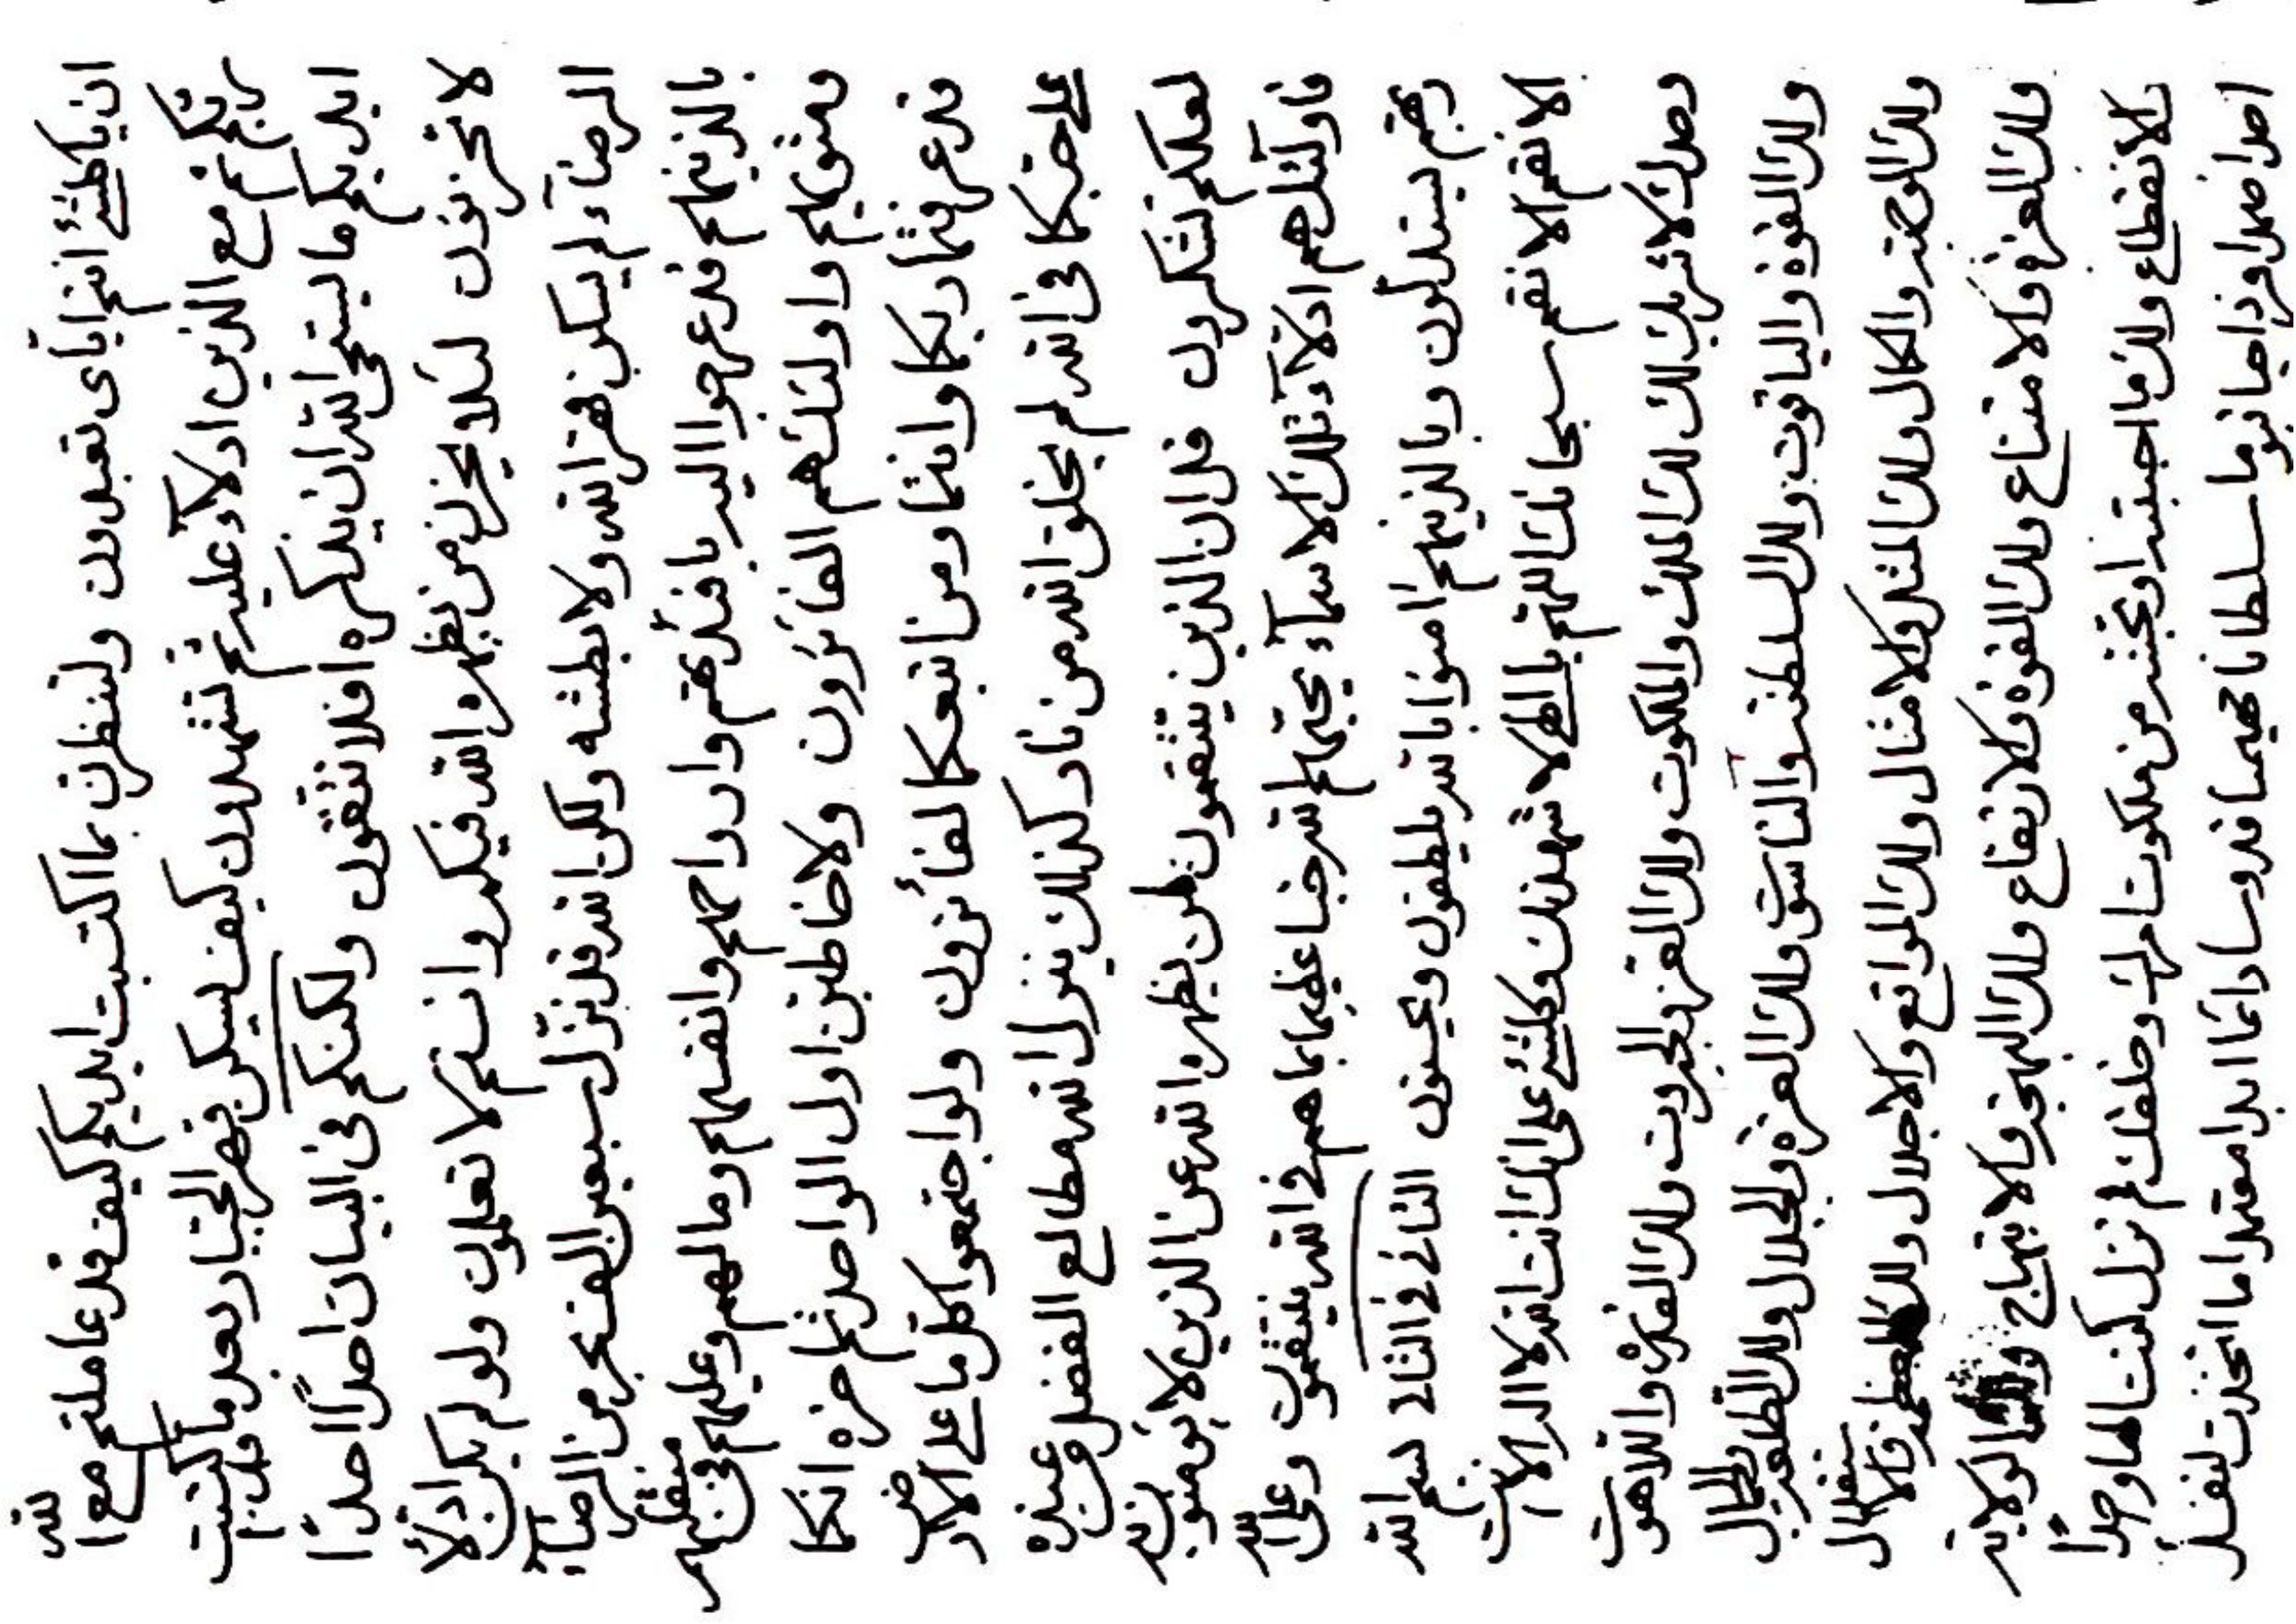 ان يا كلشئ انتم اياى تعبدون ولتنظرن بما اكتسبت ايديكم كيف قد عاملتم مع الله
ربكم ثم مع الذين ادلآء عليه ثم تشهدون كيف يسكن قهر الجبار بعد ما كتبت
ايديكم ما يستحى الله ان يذكره افلا تتقون ولكنكم فى البيان احدًا احدًا
لا تحزنون لئلا يحزن من يظهره الله فيكم وانتم لا تعلمون ولو لم يكن ادلآء
الرضآء لم يسكن قهر الله ولا بطشه ولكن الله قد نزّل سبعين الف بحر من الرضآء
بالذينهم قد عرجوا اليه بافئدتهم وارواحهم وانفسهم ومالهم وعليهم فى منقلبهم
ومثويهم واولئك هم الفائزون ولاخاطبن اول الواحد ثم اخره انكما
قد عرفتما ربكما وانتما ومن اتبعكما لفائزون ولو اجتمعوا كل ما على الارض
على حبكما فى الله لم يخلق الله من نار كذلك ينزل الله مطالع الفضل من عنده
لعلكم تشكرون قل ان الذين ينتقمون لمن يظهره الله عن الذين لا يؤمنون به
فاولئك هم ادلآء تلك الاسمآء يحبهم الله حبا عظيما بما هم فى الله ينتقمون وعلى الله
ربهم يستدلون وبالذينهم امنوا بالله يلطفون ويحسنون الثانى فى الثالث بسم الله
الانقم الانقم سبحانك اللهم يا الهى لاشهدنك وكلشئ على انك انت الله لا اله الا انت
وحدك لا شريك لك لك الملك والملكوت ولك العز والجبروت ولك القدرة واللاهوت
ولك القوة والياقوت ولك السلطنة والناسوت ولك العزة والجلال ولك الطلعة والجمال
ولك الوجهة والكمال ولك المثل والامثال ولك المواقع والاجلال ولك العظمة والاستقلال
ولك العزة والامتناع ولك القوة والارتفاع ولك البهجة والابتهاج ولك الولاية
والانقطاع ولك ما احببته او تحبنه من ملكوت امرك وخلقك لم تزل كنت الها واحدًا
احدا صمدا فردا حيا قيوما سلطانا مهيمنا قدوسا دائما ابدا معتمدا ما اتخذت لنفسك